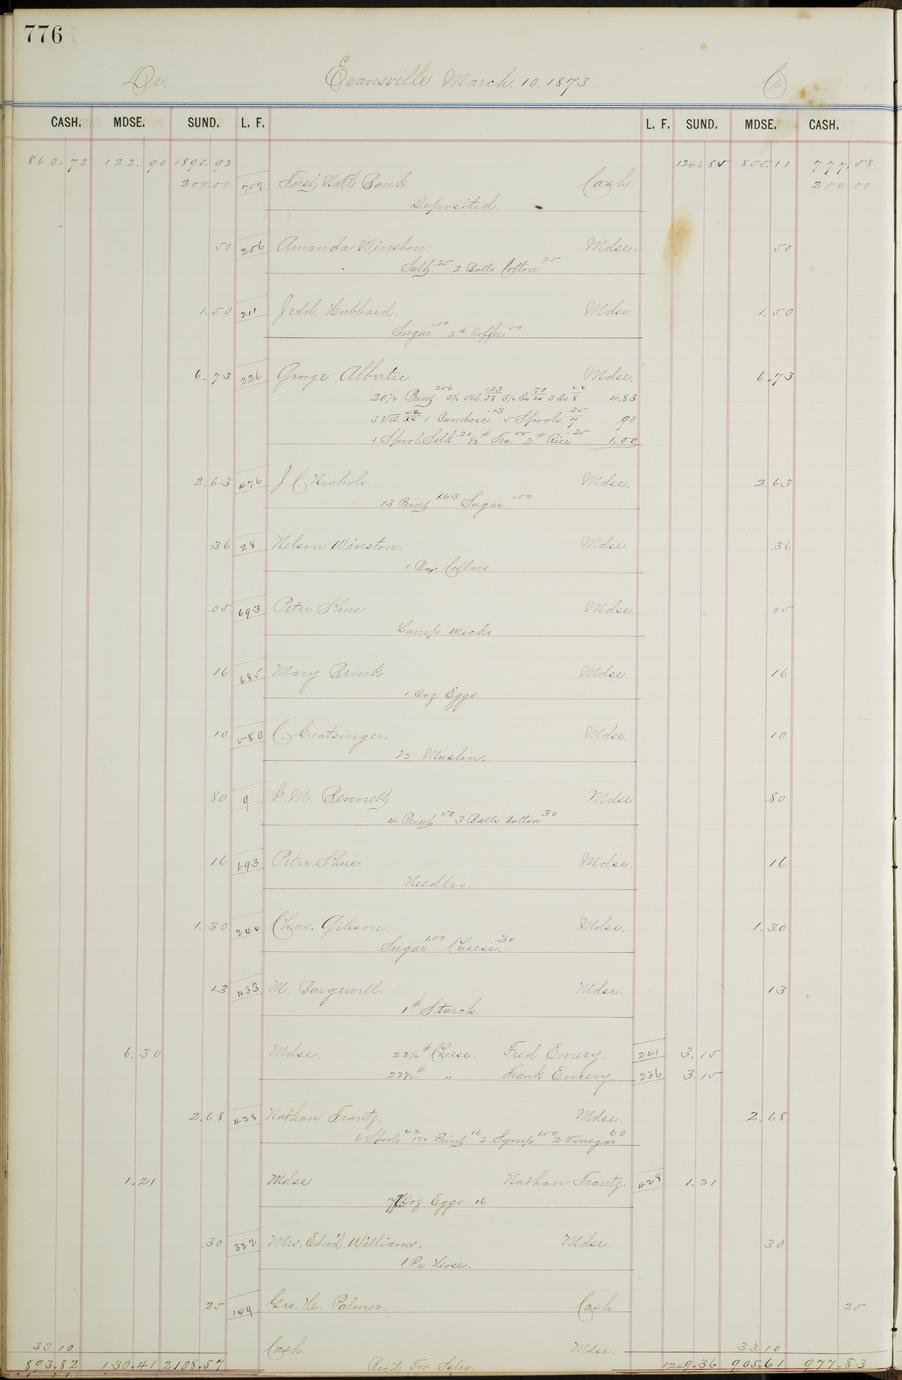 776
Dr. Evansville March. 10. 1873 Cr.
CASH. MDSE. SUND. L. F. L. F. SUND. MDSE. CASH.
860.72 122.90 1890.92 1241.85 855.11 777.58
200.00 757 First Natl Bank Cash 200.00
Deposited.
50 256 Amanda Winston. Mdse. 50
Salt 25 3 Balls Cotton 25
1.50 211 Jedd. Hubbard. Mdse 1.50
Sugar 1.00 2# Coffee 50
6.73 226 George Albertie Mdse. 6.73
4.83
1 Cambric .13 5 Spools 35 .90
1 Spool Silk 20 ½# Tea. 55 2# Rice .25 1.00
2.63 476 J. C. Nichols. Mdse. 2.63
13 Print 1.63 Sugar 1.00
.36 28 Nelson Winston. Mdse .36
1 Box Collars
.05 693 Peter Shue Mdse. 05
Lamp Wicks
16 685 Mary Brink Mdse. 16
1 Doz Eggs.
.10 580 C. Greatsinger. Mdse. 10
½ Muslin.
80 9 Mdse .80
4 Print 50 3 Balls Cotton 30
16 693 Peter Shue. Mdse 16
Needles
1.30 244 Chas. Gibson. Mdse. 1.30
Sugar 1.00 Cheese .30
13 433 M. Mdse. 13
1# Starch
6.30 Mdse. 22½# Cheese. Fred Emery. 241 3.15
22½# " Frank Emery 236 3.15
2.68 428 Nathan Frantz. Mdse. 2.68
6 Spools 42 Print 16 2 Syrup 1.50 2 Vinegar 60
1.21 Mdse Nathan Frantz. 428 1.21
Doz Eggs. 16
.30 322 Mrs. Edw'd Williams. Mdse. 30
1 Pr Hose.
25 149 Geo. H. Palmer. Cash 25
33.10 Cash Mdse 33.10
893.82 130.41 2108.57 Rec'd For Sales. 1249.36 905.61 977.83